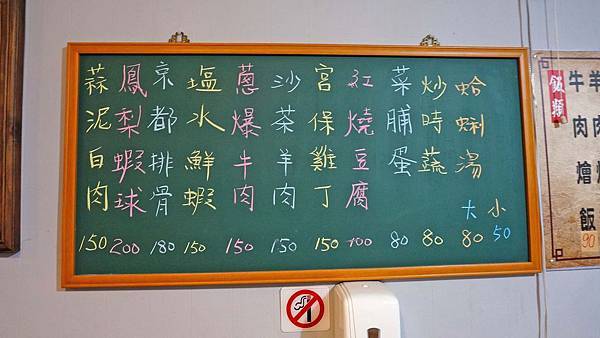 蒜泥白肉 150
鳳梨蝦球 200
京都排骨 180
塩水鮮蝦 150
蔥爆牛肉 150
沙茶羊肉 150
宮保雞丁 150
紅燒豆腐 100
菜脯蛋 80
炒時蔬 80
蛤蜊湯 大 80 小 50
飯類
牛肉燴飯 90
羊肉